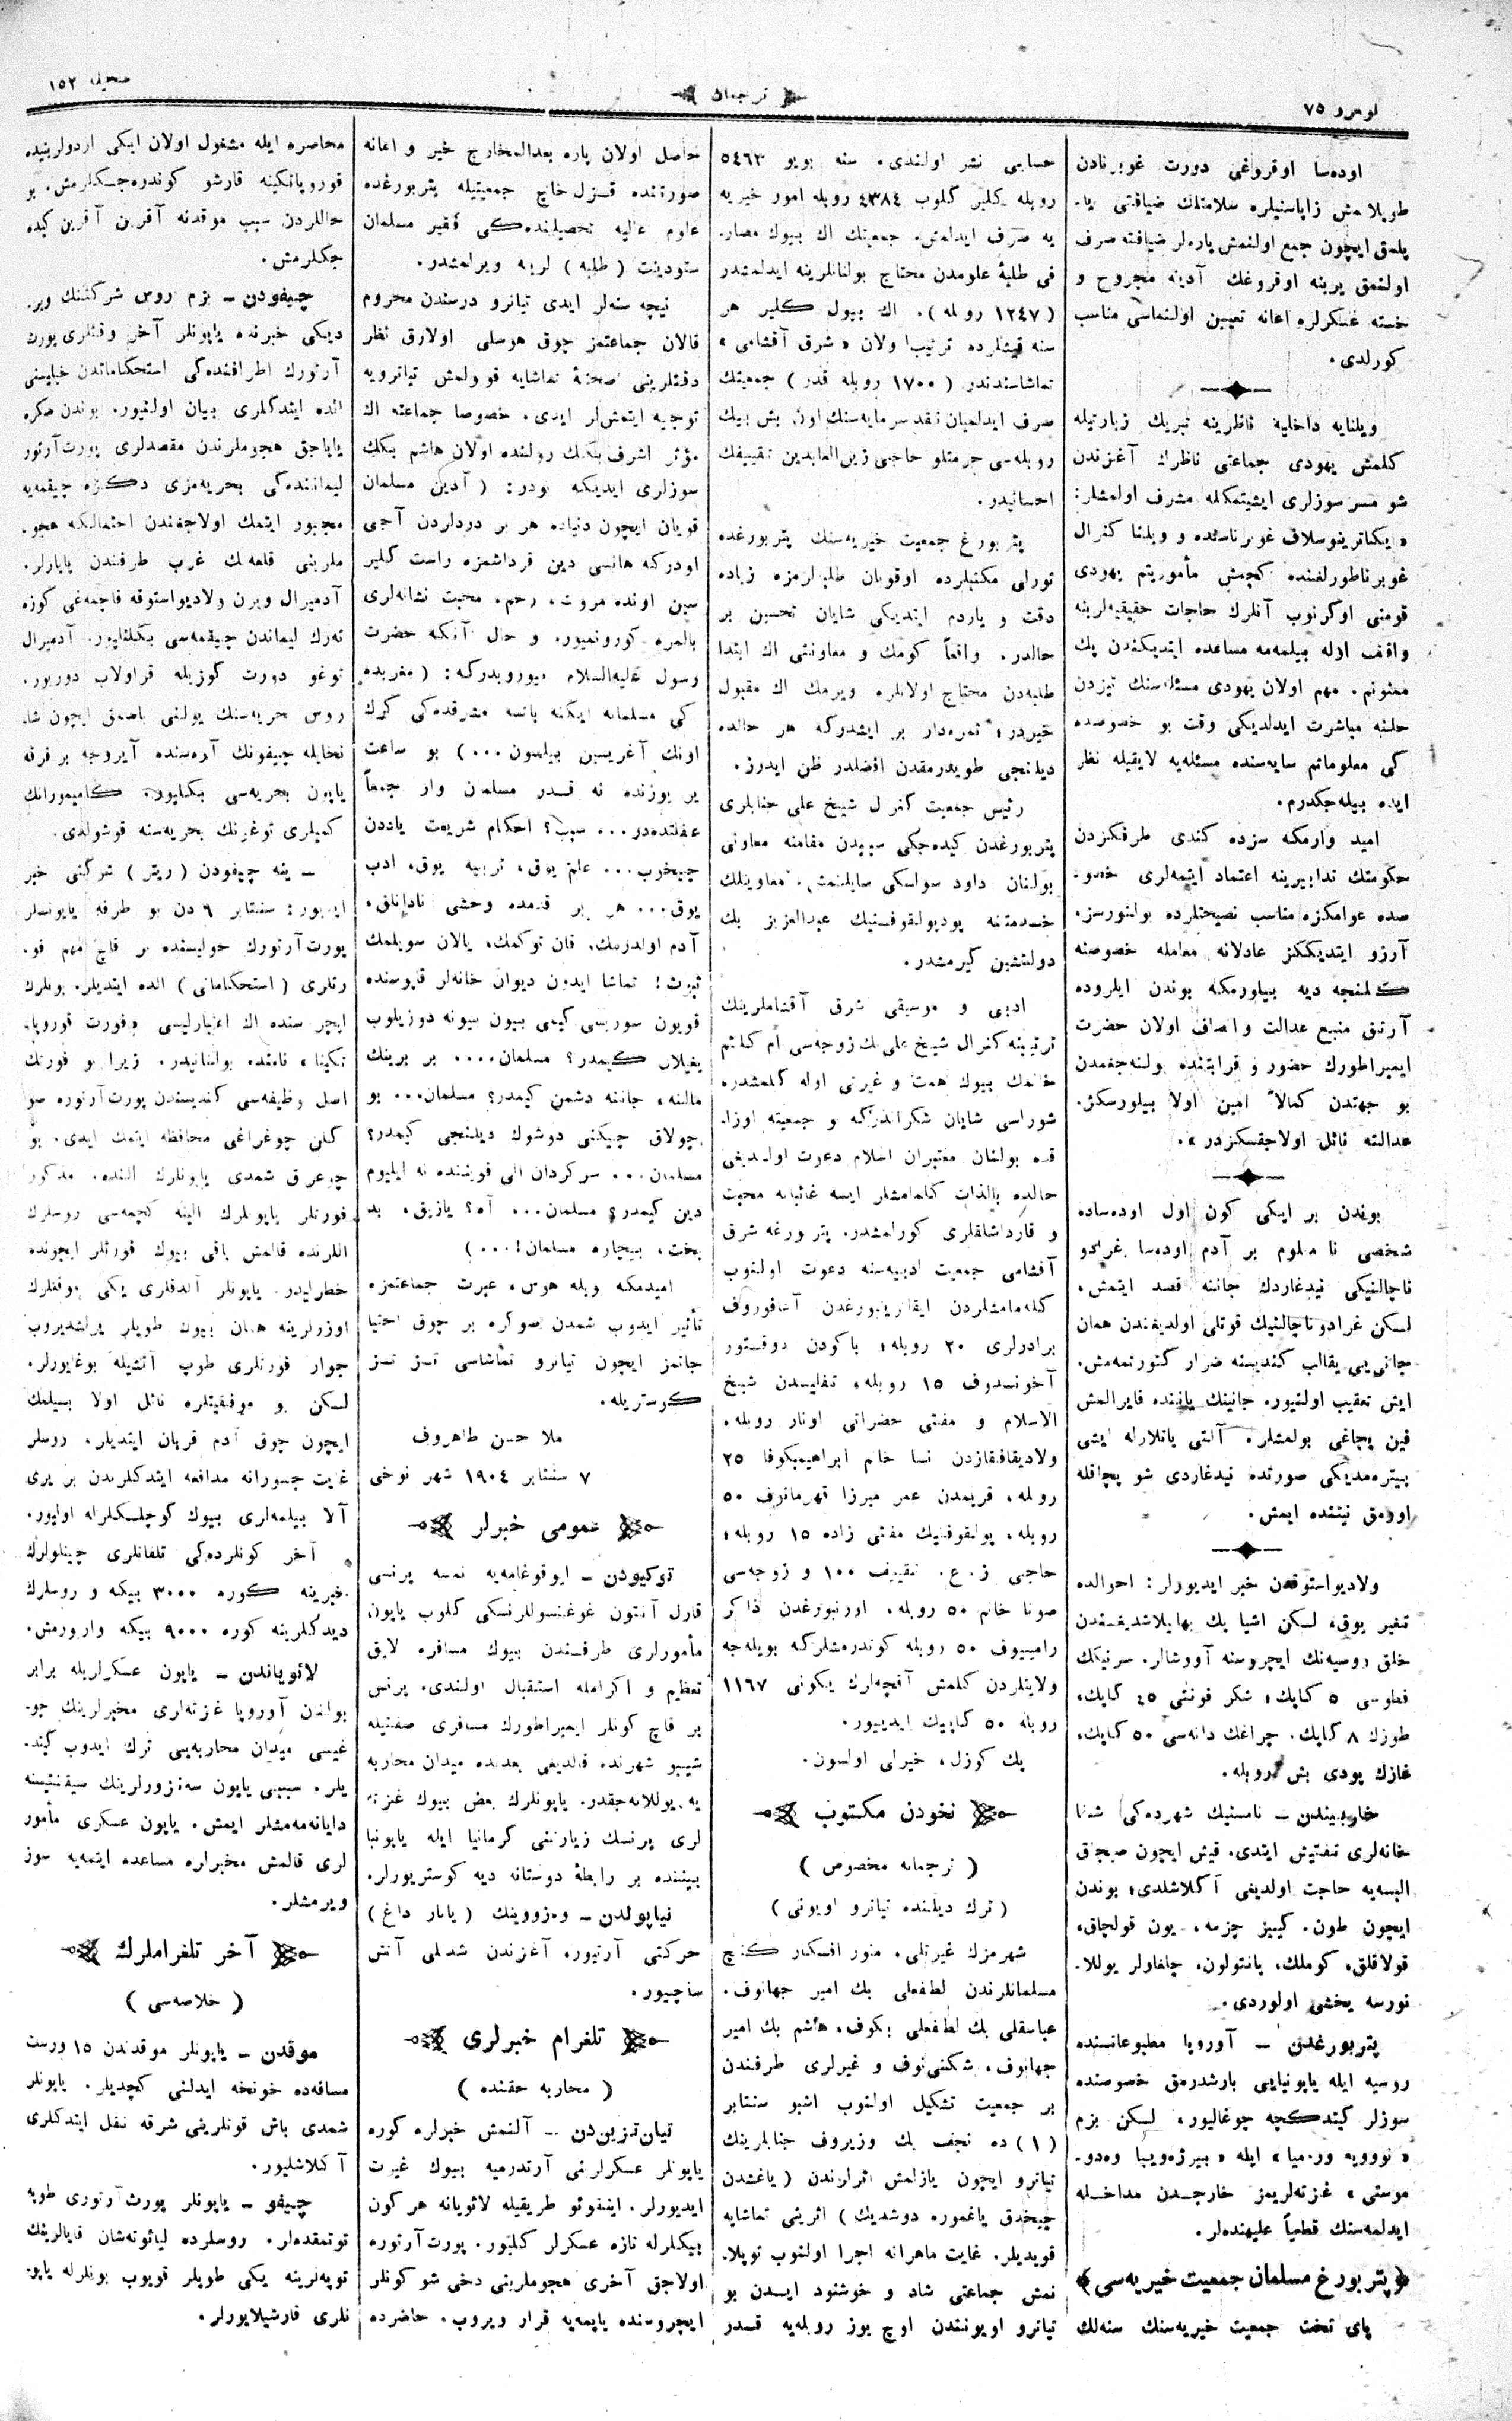 نومرو ٧٥
ترجمان
صحیفه ١٥٢
اوده‌سا اوقروغی دورت غوبرنادن
طوپلانمش زاپاسنیلره سلامتلك ضیافتی یا-
پلمق ایچون جمع اولنمش پاره‌لر ضیافته صرف
اولنمق یرینه اوقروغك آدینه مجروح و
خسته عسكرلره اعانه تعیین اولنماسی مناسب
كورلدی.
ویلنایه داخلیه ناظرینه تبریك زیارتیله
كلمش یهودی جماعتی ناظرك آغزندن
شو مسر سوزلری ایشیتمكله مشرف اولمشلر:
«یكاترینوسلاف غوبرناسنده و ویلنا كنرال
غوبرناطورلغنده كچمش مأموریتم یهودی
قومنی اوكرنوب آنلرك حاجات حقیقیه‌لرینه
واقف اوله بیلمه‌مه مساعده ایتدیكندن پك
ممنونم. مهم اولان یهودی مسئله‌سنك تیزدن
حلنه مباشرت ایدلدیكی وقت بو خصوصده
كی معلوماتم سایه‌سنده مسئله‌یه لایقیله نظر
ایده بیله‌جكدرم.
امید وارمكه سزده كندی طرفكزدن
حكومتك تدابیرینه اعتماد ایتمه‌لری خصو-
صده عوامكزه مناسب نصیحتلرده بولنورسز.
آرزو ایتدیككز عادلانه معامله خصوصنه
كلنجه دیه بیلورمكه بوندن ایلروده
آرتق منبع عدالت و انصاف اولان حضرت
ایمپراطورك حضور و قرابتنده بولنه‌جغمدن
بو جهتدن كمالاً امین اولا بیلورسكز.
عدالته نائل اولاجقسكزدر».
بوندن بر ایكی كون اول اوده‌ساده
شخصی نا معلوم بر آدم اوده‌سا غرادو
ناچالنیكی نیدغاردك جاننه قصد ایتمش،
لكن غرادوناچالنیك قوتلی اولدیغندن همان
جانی‌یی یقالب كندیسنه ضرار كتورتمه‌مش.
ایش تعقیب اولنیور. جانینك یاننده قایرالمش
فین پچاغی بولمشلر. آلتی یاتلارله ایشی
بیتره‌مدیكی صورتده نیدغاردی شو پچاقله
اورمق نیتنده ایمش.
ولادیواستوقدن خبر ایدیورلر: احوالده
تغیر یوق، لكن اشیا پك بهالیلاشدیغندن
خلق روسیه‌نك ایچروسنه آووشالر. سرنیكك
قطوسی ٥ كاپك، شكر فونتی ٤٥ كاپك،
طوزك ٨ كاپك. چراغك دانه‌سی ٥٠ كاپك،
غازك پودی بش روبله.
خاربیندن – نامستنیك شهرده‌كی شفا
خانه‌لری تفتیش ایتدی. قیش ایچون صیجاق
البسه‌یه حاجت اولدیغی آكلاشلدی؛ بوندن
ایچون طون. كییز چزمه. یون قولچاق،
قولاقلق، كوملك، پانتولون، چلغاولر یوللا-
نورسه یخشی اولوردی.
پتربورغدن – آوروپا مطبوعاتنده
روسیه ایله یاپونیایی بارشدرمق خصوصنده
سوزلر كیتدكچه چوغالیور، لكن بزم
«نوویه ورمیا» ایله «بیرژه‌وییا وه‌دو-
موستی» غزته‌لریمز خارجدن مداخله
ایدلمه‌سنك قطعیاً علیهنده‌لر.
پتربورغ مسلمان جمعیت خیریه‌سی
پای تخت جمعیت خیریه‌سنك سنه‌لك
حسابی نشر اولندی. سنه بویو ٥٤٦٣
روبله كلیر كلوب ٤٣٨٤ روبله امور خیریه
یه صرف ایدلمش. جمعیتك اك بیوك مصار-
فی طلبهٔ علومدن محتاج بولنانلرینه ایدلمشدر
(١٢٤٧ روبله). اك بیول كلیر هر
سنه قیشلرده ترتیب اولان «شرق آقشامی»
تماشاسندندر (١٧٠٠ روبله قدر) جمعیتك
صرف ایدلمیان نقد سرمایه‌سنك اون بش بیك
روبله‌سی حرمتلو حاجی زین‌العابدین تقییفك
احسانیدر.
پتربورغ جمعیت خیریه‌سنك پتربورغده
تورلی مكتبلرده اوقویان طلبه‌لرمزه زیاده
دقت و یاردم ایتدیكی شایان تحسین بر
حالدر. واقعاً كومك و معاونتی اك ابتدا
طلبه‌دن محتاج اولانلره ویرمك اك مقبول
خیردر؛ ثمره‌دار بر ایشدركه هر حالده
دیلنجی طویدرمقدن افضلدر ظن ایدرز.
رئیس جمعیت كنرال شیخ علی جنابلری
پتربورغدن كیده‌جكی سببدن مقامنه معاونی
بولنان داود سولسكی سایلنمش. معاونلك
خدمتنه پودپولقوفنیك عبدالعزیز بك
دولتشین كیرمشدر.
ادبی و موسیقی شرق آقشاملرینك
ترتیبنه كنرال شیخ علی‌نك زوجه‌سی ام كلثم
خانمك بیوك همت و غیرتی اوله كلمشدر.
شوراسی شایان شكراندركه و جمعیته اوزا-
قده بولنان معتبران اسلام دعوت اولندیغی
حالده بالذات كلمامشلر ایسه غائبانه محبت
و قارداشلقلری كورلمشدر. پتربورغه شرق
آقشامی جمعیت ادبیه‌سنه دعوت اولنوب
كله‌مامشلردن ایقاترینبورغدن آغافوروف
برادرلری ٢٠ روبله؛ باكودن دوقتور
آخوندوف ١٥ روبله، تفلیسدن شیخ
الاسلام و مفتی حضراتی اونار روبله،
ولادیقافقازدن نسا خانم ابراهیمبكوفا ٢٥
روبله، قریمدن عمر میرزا قهرمانوف ٥٠
روبله، پولقوفنیك مفتی زاده ١٥ روبله؛
حاجی ز.ع. تقییف ١٠٠ و زوجه‌سی
صونا خانم ٥٠ روبله، اورنبورغدن ذاكر
رامییوف ٥٠ روبله كوندرمشلركه بویله‌جه
ولایتلردن كلمش آقچه‌لرك یكونی ١١٦٧
روبله ٥٠ كاپیك ایدییور.
پك كوزل، خیرلی اولسون.
نخودن مكتوب
(ترجمانه مخصوص)
(ترك دیلنده تیاترو اویونی)
شهرمزك غیرتلی، منور افكار كنج
مسلمانلرندن لطفعلی بك امیر جهانوف،
عباسقلی بك لطفعلی بكوف، هاشم بك امیر
جهانوف، شكنی‌نوف و غیرلری طرفندن
بر جمعیت تشكیل اولنوب اشبو سنتابر
(١) ده نجف بك وزیروف جنابلرینك
تیاترو ایچون یازلمش اثرلرندن (یاغشدن
چیخدق یاغموره دوشدیك) اثرینی تماشایه
قویدیلر. غایت ماهرانه اجرا اولنوب توپلا-
نمش جماعتی شاد و خوشنود ایدن بو
تیاترو اویونندن اوچ یوز روبله‌یه قدر
حاصل اولان پاره بعدالمخارج خیر و اعانه
صورتنده قزل خاچ جمعیتیله پتربورغده
علوم عالیه تحصیلنده‌كی فقیر مسلمان
ستودینت (طلبه) لریه ویرلمشدر.
نیچه سنه‌لر ایدی تیاترو درسندن محروم
قالان جماعتمز چوق هوسلی اولارق نظر
دقتلرینی صحنهٔ تماشایه قوولمش تیاترویه
توجیه ایتمش‌لر ایدی. خصوصا جماعته اك
مؤثر اشرف بكك رولنده اولان هاشم بكك
سوزلری ایدیكه بودر: (آدین مسلمان
قویان ایچون دنیاده هر بر دردلردن آجی
اودركه هانسی دین قرداشمزه راست كلیر
سین اونده مروت، رحم، محبت نشانه‌لری
بالمره كورونمیور. و حال آنكه حضرت
رسول علیه‌السلام بیوروبدركه: (مغربده
كی مسلمانه ایكنه باتسه مشرقده‌كی كرك
اونك آغریسین بیلسون...) بو ساعت
یر یوزنده نه قدر مسلمان وار جمعاً
غفلتده‌در... سبب؟ احكام شریعت یاددن
چیخوب... علم یوق، تربیه یوق، ادب
یوق... هر بر قدمده وحشی نادانلق،
آدم اولدرمك، قان توكمك، یالان سویلمك
ثبوت! تماشا ایدون دیوان خانه‌لر قاپوسنده
قویون سوریسی كیمی بیون بیونه دوزیلوب
یغیلان كیمدر؟ مسلمان.... بر برینك
مالنه، جاننه دشمن كیمدر؟ مسلمان... بو
چولاق چیكنی دوشوك دیلنجی كیمدر؟
مسلمان... سركردان الی قوینننده نه ایلیوم
دین كیمدر؟ مسلمان... آه؟ یازیق، بد
بخت، بیچاره مسلمان!...)
امیدمكه ویله هوس، عبرت جماعتمزه
تأثیر ایدوب شمدن صوكره بر چوق احتیا
جاتمز ایچون تیاترو تماشاسی تز تز
كوستریله.
ملا حسن طاهروف
٧ سنتابر ١٩٠٤ شهر نوخی
عمومی خبرلر
توكیودن – ایوقوغامه‌یه نمسه پرنسی
قارل آنتون غوغنسوللرنسكی كلوب یاپون
مأمورلری طرفندن بیوك مسافره لایق
تعظیم و اكرامله استقبال اولندی. پرنس
بر قاچ كونلر ایمپراطورك مسافری صفتیله
شیبو شهرنده قالدیغی بعدنده میدان محاربه
یه یوللانه‌جقدر. یاپونلرك بعض بیوك غزته
لری پرنسك زیارتنی كرمانیا ایله یاپونیا
بیننده بر رابطهٔ دوستانه دیه كوستریورلر.
نیاپولدن – وه‌زووینك (یانار داغ)
حركتی آرتیور، آغزندن شدتلی آتش
ساچیور.
تلغرام خبرلری
(محاربه حقنده)
تیان‌تزین‌دن – آلنمش خبرلره كوره
یاپونلر عسكرلرنی آرتدرمیه بیوك غیرت
ایدیورلر. اینقوئو طریقیله لائویانه هر كون
بیكلرله تازه عسكرلر كلیور. پورت آرتوره
اولاجق آخری هجوملرینی دخی شو كونلر
ایچروسنده یاپمه‌یه قرار ویروب، حاضرده
محاصره ایله مشغول اولان ایكی اردولرینیده
قوروپاتكینه قارشو كوندره‌جكلرمش. بو
حاللردن سبب موقدنه آقرین آقرین كیده
جكلرمش.
چیفودن – بزم روس شركتنك ویر-
دیكی خبرنده یاپونلر آخر وقتلری پورت
آرتورك اطرافنده‌كی استحكاماتدن خیلیسنی
الده ایتدكلری بیان اولنیور. بوندن صكره
یاپاجق هجوملرندن مقصدلری پورت‌آرتور
لیماننده‌كی بحریه‌مزی دكزه چیقمه‌یه
مجبور ایتمك اولاجغندن احتمالكه هجو-
ملرینی قلعه‌نك غرب طرفندن یاپارلر.
آدمیرال ویرن ولادیواستوقه قاچمه‌غی كوزه
ته‌رك لیماندن چیقمه‌سی بكلنلیور. آدمیرال
توغو دورت كوزیله قراولاب دوریور.
روس بحریه‌سنك یولنی باصمق ایچون شا-
نخایله چیفونك آره‌سنده آیروجه بر فرقه
یاپون بحریه‌سی بكلیور. كامیمورانك
كمیلری توغونك بحریه‌سنه قوشولدی.
– ینه چیفودن (ریتر) شركتی خبر
ایدیور: سنتابر ٦ دن بو طرفه یاپونلر
پورت‌آرتورك حوالیسنده بر قاچ مهم فو-
رتلری (استحكاماتی) الده ایتدیلر. بونلرك
ایچرسنده اك اعتبارلیسی «فورت قوروپا-
تكینا» نامنده بولنانیدر. زیرا بو فورتك
اصل وظیفه‌سی كندیسندن پورت‌آرتوره صو
كلن چوغراغی محافظه ایتمك ایدی. بو
چوغرق شمدی یاپونلرك النده. مذكور
فورتلر یاپونلرك الینه كچمه‌سی روسلرك
اللرنده قالمش باقی بیوك فورتلر ایچونده
خطرلیدر. یاپونلر آلدقلری یكی موقعلرك
اوزرلرینه همان بیوك طوپلر یرلشدیروب
جوار فورتلری طوپ آتشیله بوغایورلر.
لكن بو موفقیتلره نائل اولا بیلمك
ایچون چوق آدم قربان ایتدیلر. روسلر
غایت جسورانه مدافعه ایتدكلرندن بر یری
آلا بیلمه‌لری بیوك كوچلكلرله اولیور.
آخر كونلرده‌كی تلفاتلری چینلولرك
خبرینه كوره ٣٠٠٠ بیكه و روسلرك
دیدكلرینه كوره ٩٠٠٠ بیكه وارورمش.
لائویاندن – یاپون عسكرلریله برابر
بولنان آوروپا غزته‌لری مخبرلرینك چو-
غیسی میدان محاربه‌یی ترك ایدوب كیتد-
یلر. سببی یاپون سه‌نزورلرینك صیقنتیسنه
دایانه‌مه‌مشلر ایمش. یاپون عسكری مأمور
لری قالمش مخبرلره مساعده ایتمه‌یه سوز
ویرمشلر.
آخر تلغراملرك
(خلاصه‌سی)
موقدن – یاپونلر موقدندن ١٥ ورست
مسافه‌ده خونخه ایدلنی كچدیلر. یاپونلر
شمدی باش قوتلرینی شرقه نقل ایتدكلری
آكلاشلیور.
چیفو – یاپونلر پورت آرتوری طوپه
توتمقده‌لر. روسلرده لیائوته‌شان قایالرینك
توپه‌لرینه یكی طوپلر قویوب بونلرله یاپو-
نلری قارشیلایورلر.